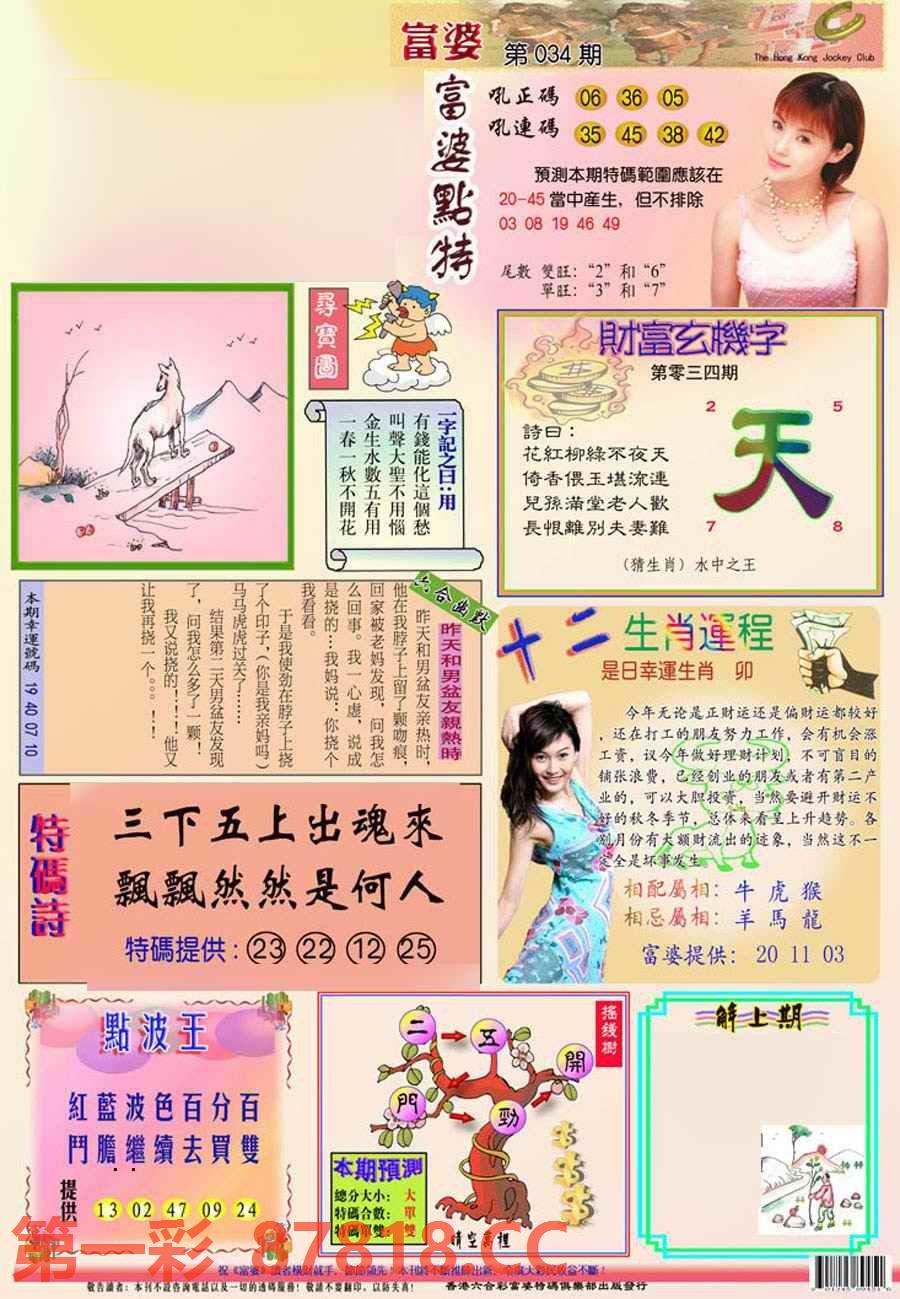 富婆 第034期
The Hong Kong Jockey Club
富婆點特
吼正碼 06 36 05
吼連碼 35 45 38 42
預測本期特碼範圍應該在
20-45當中産生，但不排除
03 08 19 46 49
尾數 雙旺：“2”和“6”
單旺：“3”和“7”
尋寶圖
一字記之曰：用
有錢能化這個愁
叫聲大聖不用惱
金生水數五有用
一春一秋不開花
財富玄機字
第零三四期
2 5
天
7 8
詩曰：
花紅柳綠不夜天
倚香偎玉堪流連
兒孫滿堂老人歡
長恨離別夫妻難
（猜生肖）水中之王
六合幽默
昨天和男盆友親熱時
昨天和男盆友亲热时，
他在我脖子上留了颗吻痕，
回家被老妈发现，问我怎
么回事。我一心虚，说成
是挠的…我妈说：你挠个
我看看。
于是我使劲在脖子上挠
了个印子，（你是我亲妈吗）
马马虎虎过关了……
结果第二天男盆友发现
了，问我怎么多了一颗！
我又说挠的！！！他又
让我再挠一个。。。！！
本期幸運號碼 19 40 07 10
十二生肖運程
是日幸運生肖 卯
今年无论是正财运还是偏财运都较好
，还在打工的朋友努力工作，会有机会涨
工资，议今年做好理财计划，不可盲目的
铺张浪费，已经创业的朋友或者有第二产
业的，可以大胆投资，当然要避开财运不
好的秋冬季节，总体来看呈上升趋势。各
别月份有大额财流出的迹象，当然这不一
定全是坏事发生
相配屬相：牛 虎 猴
相忌屬相：羊 馬 龍
富婆提供：20 11 03
特碼詩
三下五上出魂來
飄飄然然是何人
特碼提供：23 22 12 25
點波王
紅藍波色百分百
鬥膽繼續去買雙
提供 13 02 47 09 24
搖錢樹
二 五 開
門 勁
本期預測
總分大小：大
特碼合數：單
特碼單雙：雙
晴空萬里
解上期
第一彩 87818.CC
敬告讀者：本刊不設咨詢電話以及一切的透碼服務！敬請不要翻印，以防失真！
香港六合彩富婆特碼俱樂部出版發行